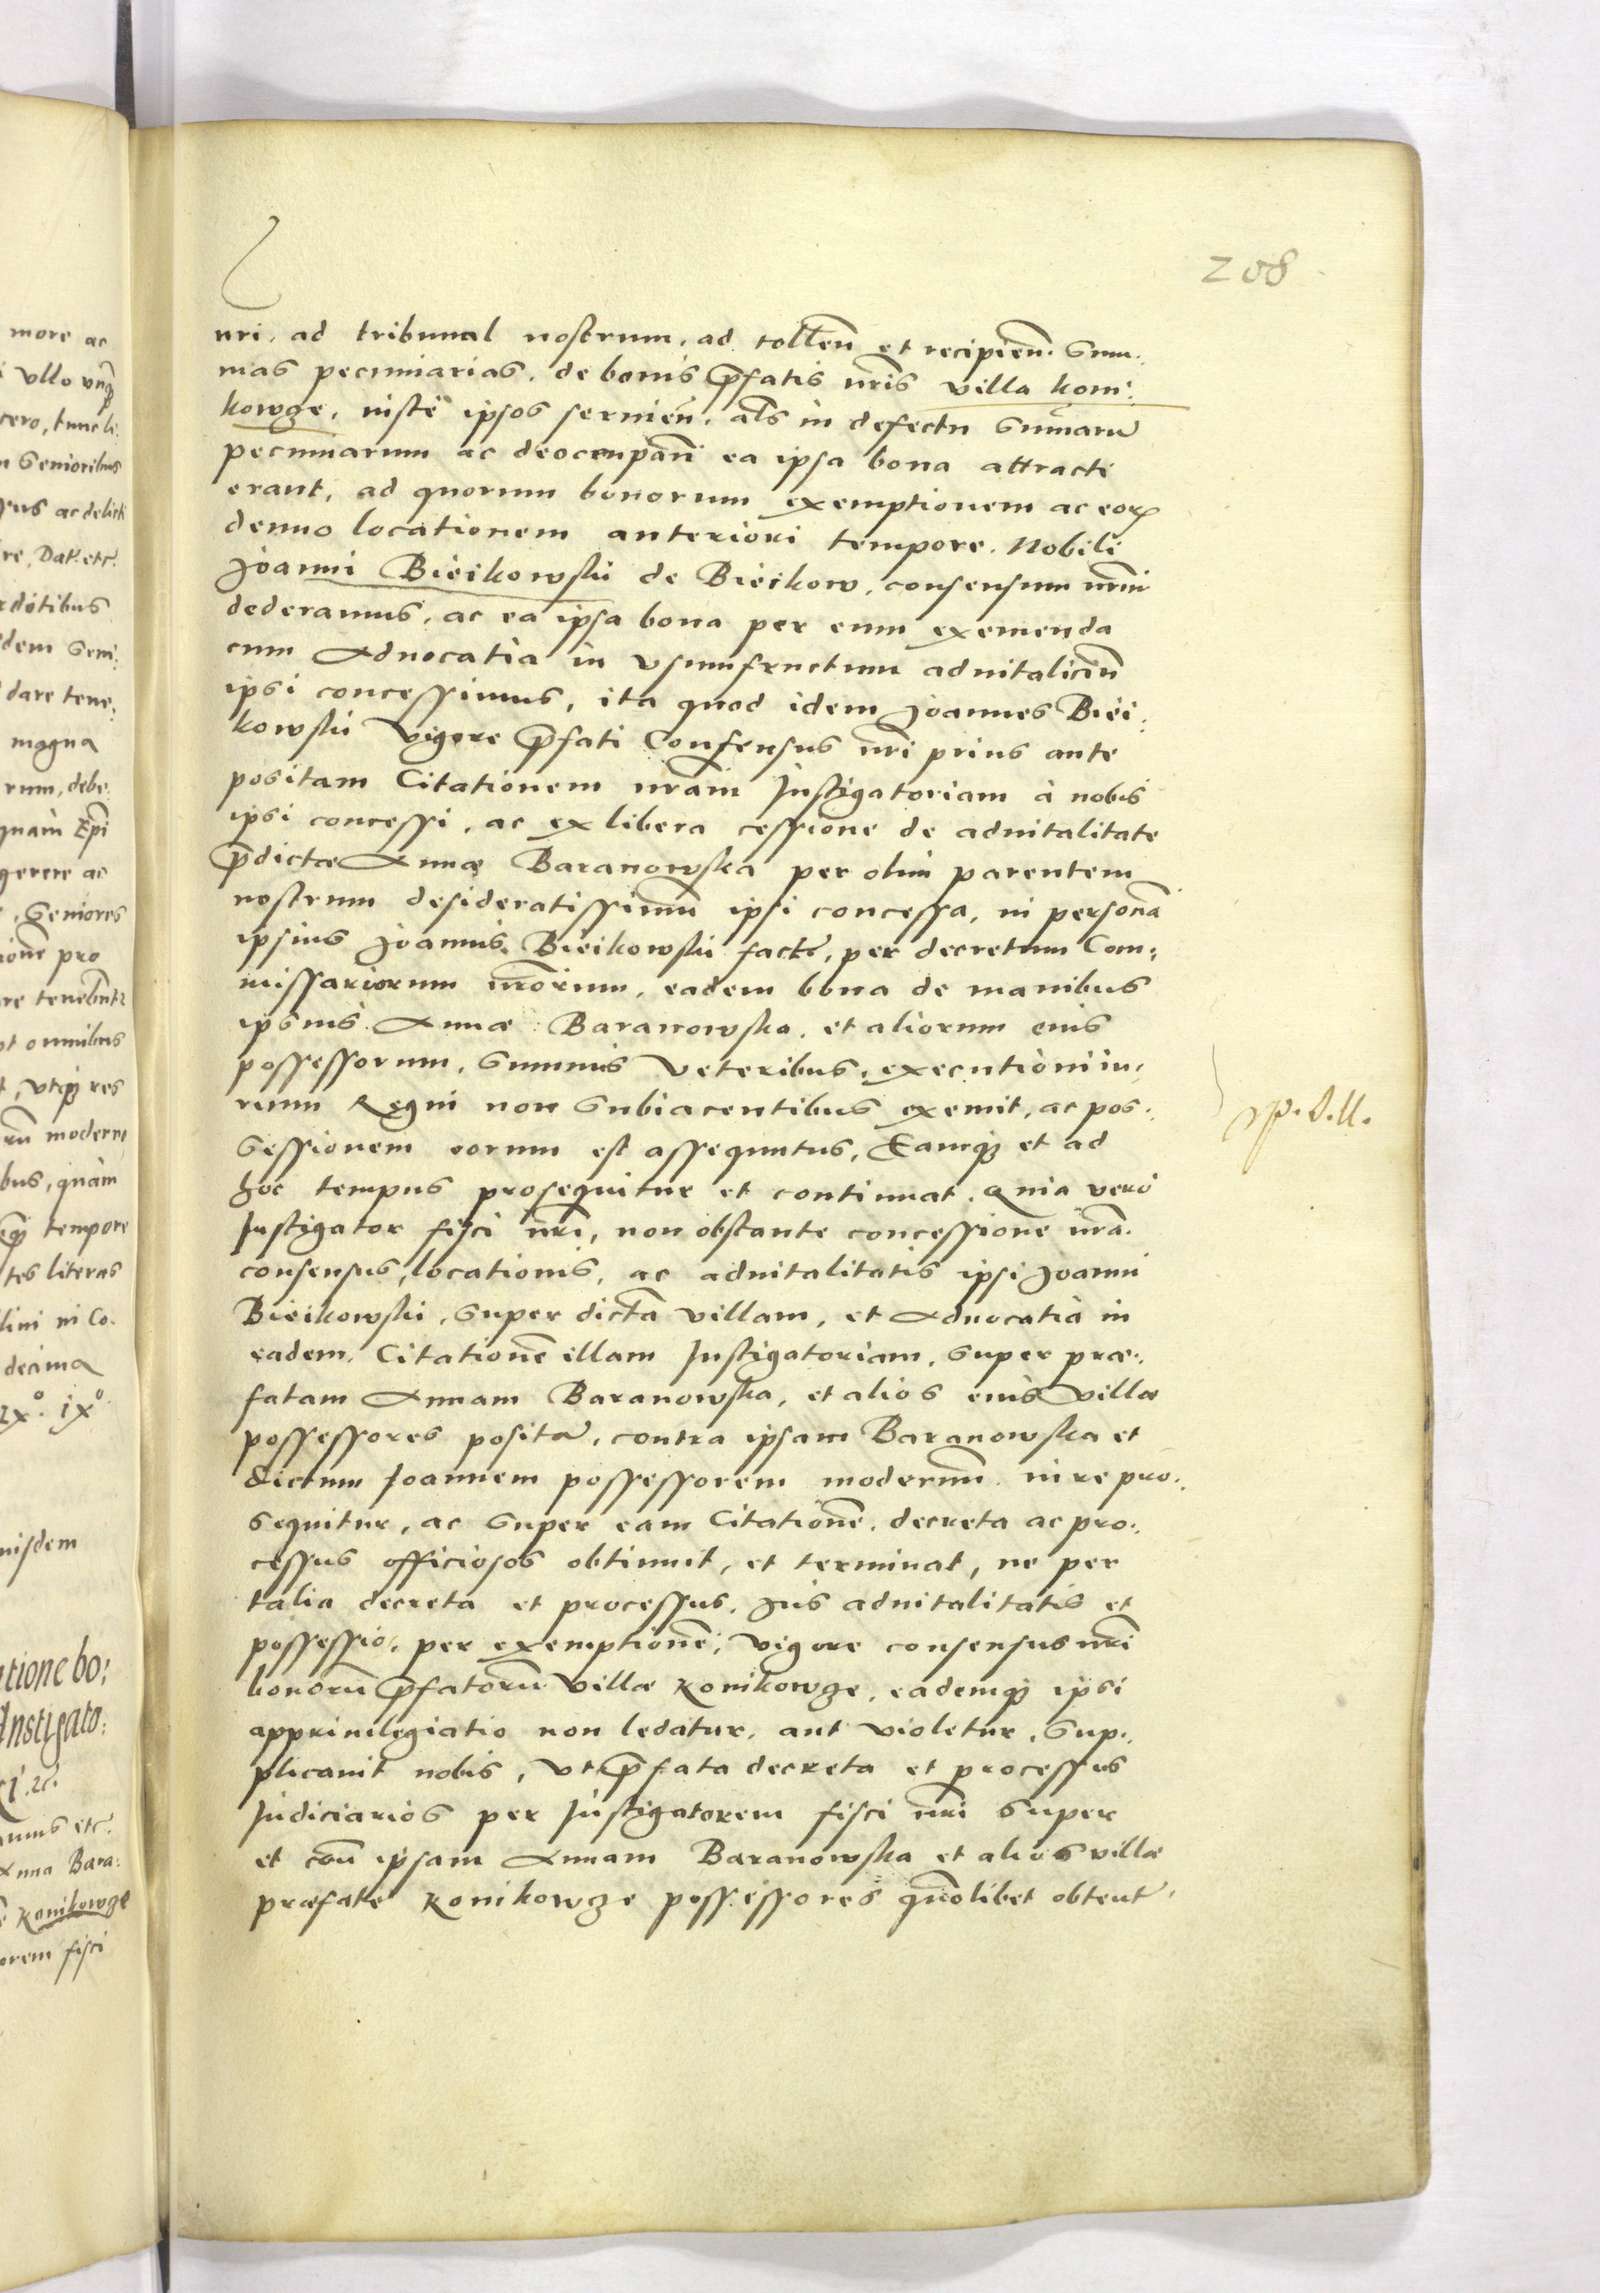 208
nri. ad tribunal nostrum. ad tollen̄ et recipien̄. Sum:
mas pecuniarias. de bonis p̄fatis nr̄is villa Koni:
kowge, iuste ipsos seruien̄. al̄s in defectu Summarū
pecuniarum ac deocupan̄ ea ipsa bona attracti
erant, ad quorum bonorum exemptionem ac eorꝝ
denuo locationem anteriori tempore. Nobili
Joanni Bieikowskii de Bieikow, consensum nr̄m
dederamus, ac ea ipsa bona per eum exemenda
cum Aduocatia in vsumfructum aduitaliciū
ipsi concessimus, ita quod idem Joannes Biei:
kowskii Vigore p̄fati Consensus nr̄i prius ante
positam Citationem nr̄am Instigatoriam à nobis
ipsi concessi, ac ex libera cessione de aduitalitate
p̄dictæ Annæ Baranowska per olim parentem
nostrum desideratissimū ipsi concessa, in personā
ipsius Joannis Bieikowskii factę, per decretum Com:
missariorum nr̄orum, eadem bona de manibus
ipsius Annæ Baranowska et aliorum eius
possessorum, Summis Veteribus, executioni iu:
rium Regni non Subiacentibus exemit, ac pos:
Sessionem eorum est assequutus, Eamqȝ et ad
hoc tempus prosequitur et continuat. Quia vero
Instigator fisci nr̄i, non obstante concessione nr̄a.
consensus, locationis, ac aduitalitatis ipsi Joanni
Bieikowskii, Super dictā villam, et Aduocatiā in
eadem, Citationē illam Instigatoriam, Super præ:
fatam Annam Baranowska, et alios eius Villæ
possessores positā, contra ipsam Baranowska et
dictum Joannem possessorem modernū iure pro:
sequitur, ac Super eam Citationē, decreta ac pro:
cessus officiosos obtinuit, et terminat, ne per
talia decreta et processus, Jus aduitalitatis et
possessio, per exemptionē, vigore consensus nr̄i
bonorū p̄fatorū Villæ Konikowge, eademqȝ ipsi
appriuilegiatio non ledatur, aut violetur, Sup:
plicauit nobis, Vt p̄fata decreta et processus
Judiciarios per Instigatorem fisci nr̄i Super
et con̄ ipsam Annam Baranowska et alios villæ
præfatę Konikowge possessores quōlibet obtent